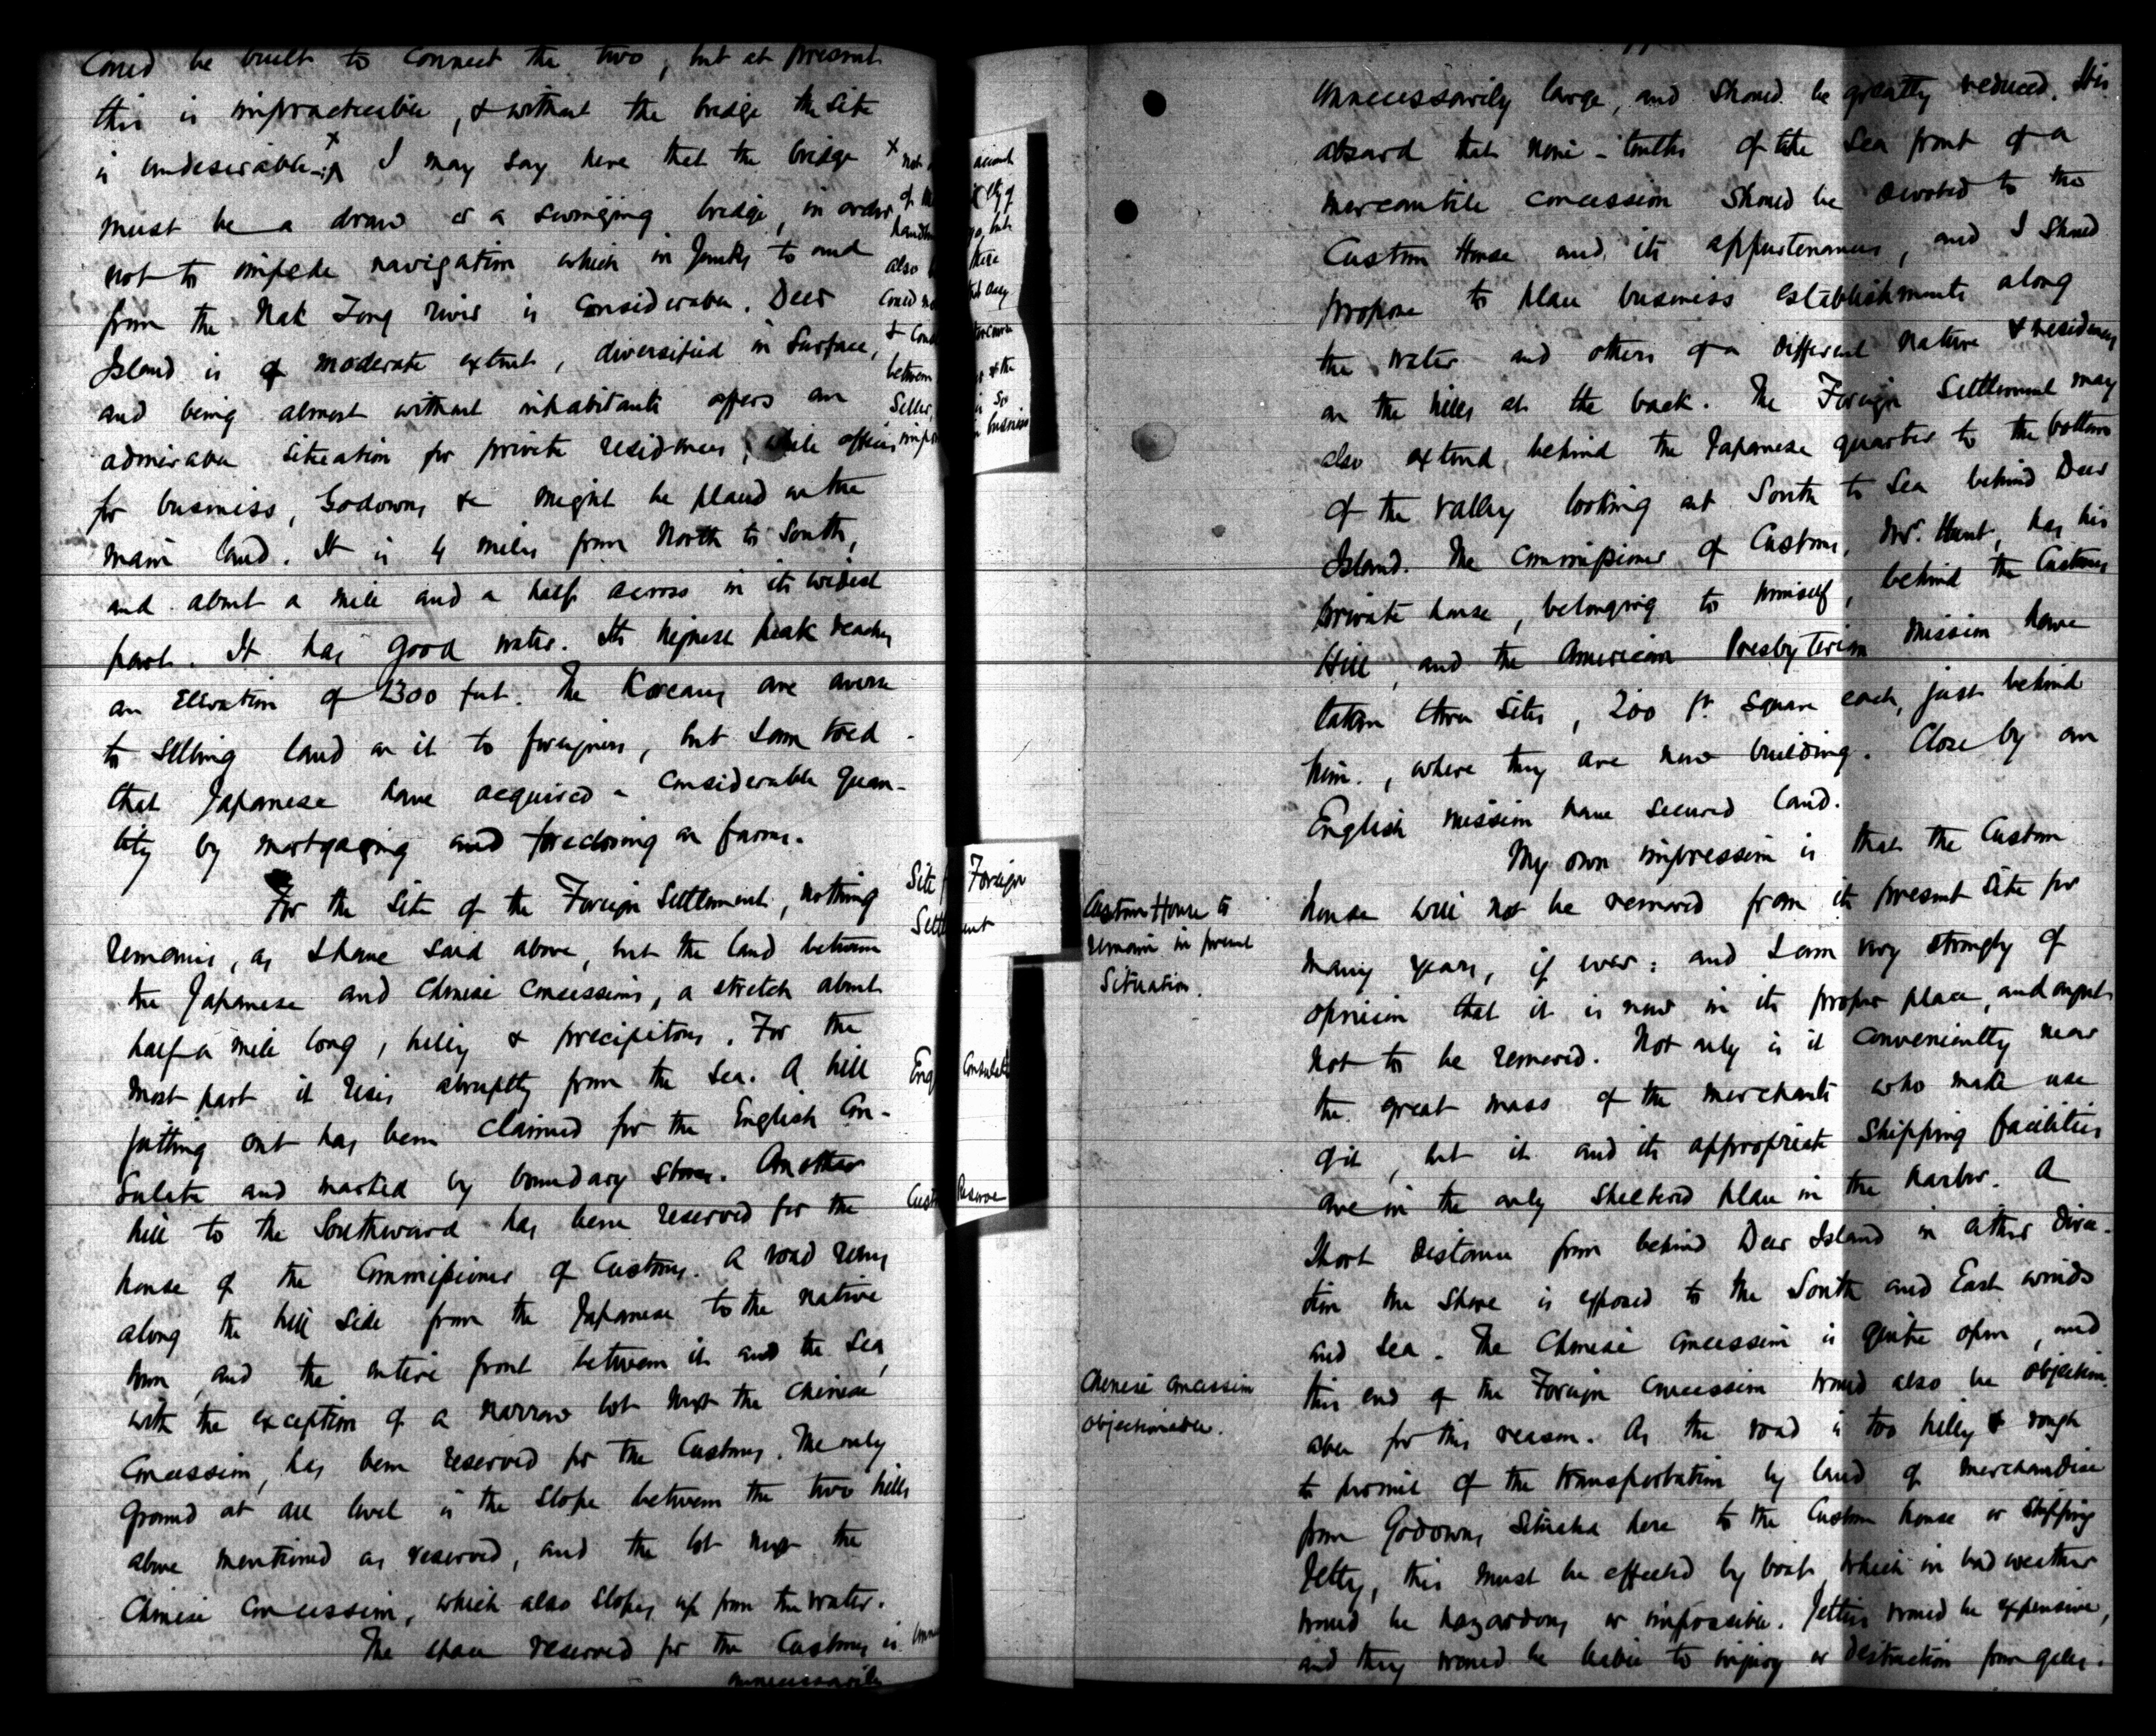 Could be built to connect the two, but at present
this is impracticable, & without the bridge the site
is undesirable. x I may say here that the bridge
must be a draw or a swinging bridge, in order
not to impede navigation which in Junks to and
from the Nak Tong river is considerable. Deer
Island is of moderate extent, diversified in surface,
and being almost without inhabitants offers an
admirable situation for private residences, while offices
for business, Godowns &c might be placed on the
main land. It is 4 miles from North to South,
and about a mile and a half across in its widest
part. It has good water. Its highest peak reaches
an Elevation of 1300 feet. The Koreans are averse
to selling land on it to foreigners, but I am told
that Japanese have acquired a considerable quan-
tity by mortgaging and foreclosing on farms.
For the site of the Foreign Settlement, nothing
remains, as I have said above, but the land between
the Japanese and Chinese concessions, a stretch about
half a mile long, hilly & precipitous. For the
most part it rises abruptly from the sea. A hill
jutting out has been claimed for the English Con-
sulate and marked by boundary stones. Another
hill to the Southward has been reserved for the
house of the Commissioner of Customs. A road runs
along the hill side from the Japanese to the native
town and the entire front between it and the sea,
with the exception of a narrow lot next the Chinese
Concession, has been reserved for the Customs. The only
ground at all level is the slope between the two hills
above mentioned as reserved, and the lot next the
Chinese Concession, which also slopes up from the water.
The space reserved for the Customs is
unnecessarily
x not
also
could not
between
& the
is so
business
Site Foreign
Settlement
Eng Consulate
Cust Reserve
unnecessarily large, and should be greatly reduced. It is
absurd that nine-tenths of the sea front of a
mercantile concession should be devoted to the
Custom House and its appurtenances, and I should
propose to place business establishments along
the water and others of a different nature & residences
on the hills at the back. The Foreign Settlement may
also extend behind the Japanese quarter to the bottom
of the valley looking out South to Sea behind Deer
Island. The Commissioner of Customs, Mr. Hunt, has his
private house, belonging to himself, behind the Customs
Hill, and the American Presbyterian Mission have
taken three sites, 200 ft square each, just behind
him, where they are now building. Close by an
English mission have secured land.
My own impression is that the Custom
Custom House to
remain in present
Situation.
house will not be removed from its present site for
many years, if ever: and I am very strongly of
opinion that it is now in its proper place, and ought
not to be removed. Not only is it conveniently near
the great mass of the merchants who make use
of it, but it and its appropriate shipping facilities
are in the only sheltered place in the harbor. A
short distance from behind Deer Island in either direc-
tion the shore is exposed to the South and East winds
and sea. The Chinese concession is quite open, and
Chinese concession
objectionable.
this end of the Foreign Concession would also be objection-
able for this reason. As the road is too hilly & rough
to permit of the transportation by land of merchandise
from Godowns situated here to the Custom house or shipping
Jetty, this must be effected by boat which in bad weather
would be hazardous or impossible. Jetties would be expensive,
and they would be liable to injury or destruction from gales.